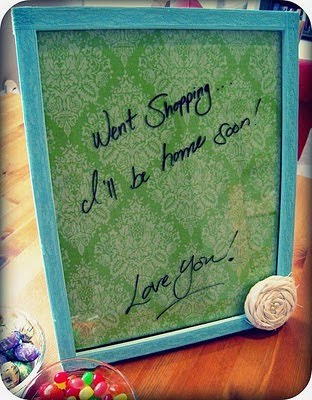 Went Shopping...
I'll be home soon!
Love you!